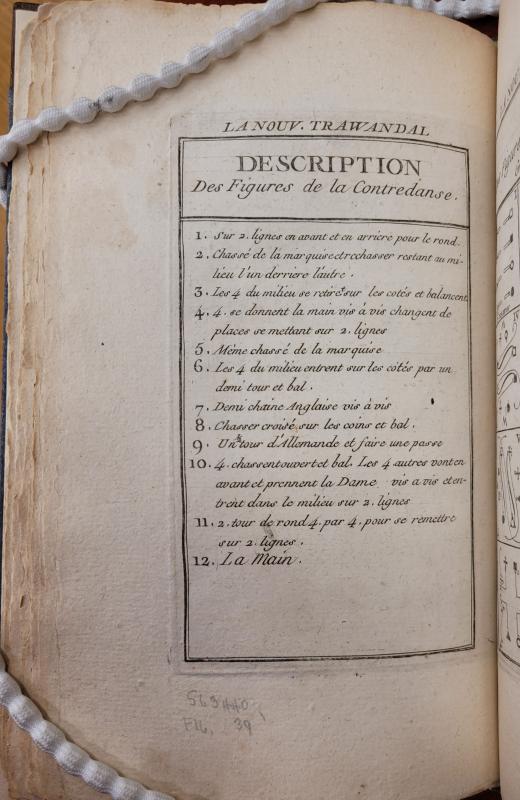 LA NOUV. TRAWANDAL
DESCRIPTION
Des Figures de la Contredanse.
1. Sur 2. lignes en avant et en arriere pour le rond.
2. Chassé de la marquise et rechasser restant au mi-
lieu l'un derriere l'autre.
3. Les 4 du milieu se retire^t sur les cotés et balancent
4. 4. se donnent la main vis à vis changent de
places se mettant sur 2. lignes
5. Même chassé de la marquise
6. Les 4 du milieu entrent sur les côtés par un
demi tour et bal.
7. Demi chaine Anglaise vis à vis
8. Chasser croisé sur les coins et bal.
9. Un tour d'Allemande et faire une passe
10. 4. chassent ouvert et bal. Les 4 autres vont en
avant et prennent la Dame vis a vis et en-
trent dans le milieu sur 2. lignes
11. 2. tour de rond 4. par 4. pour se remettre
sur 2. lignes.
12. La Main.